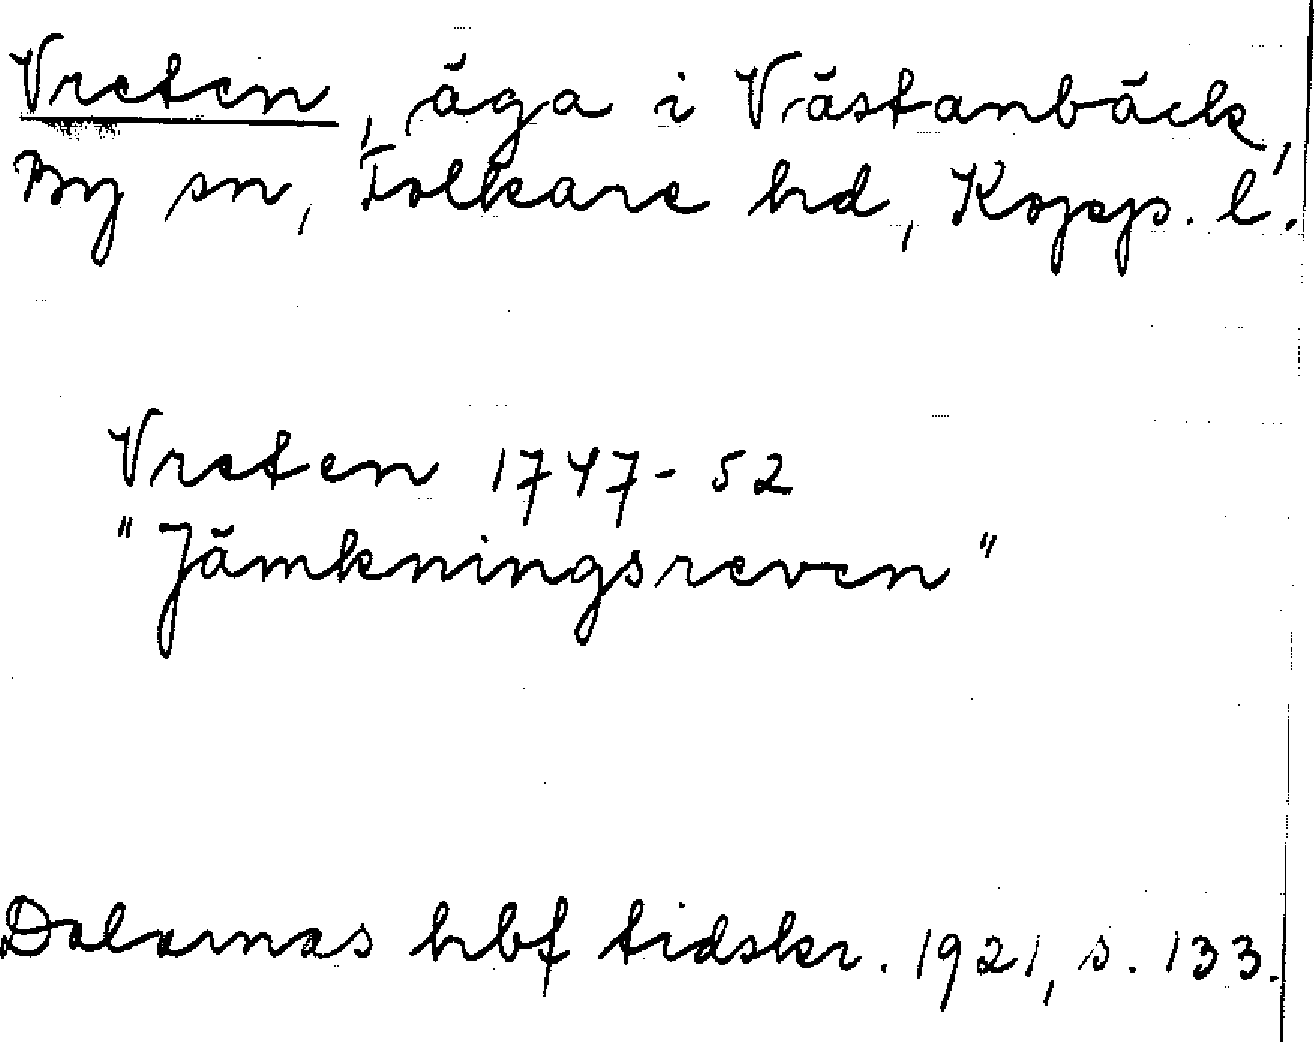 Vreten, äga i Västanbäck,
By sn, Folkare hd, Kopp. l.
Vreten 1747-52
"Jämkningsreven"
Dalarnas hbf tidskr. 1921, s. 133.